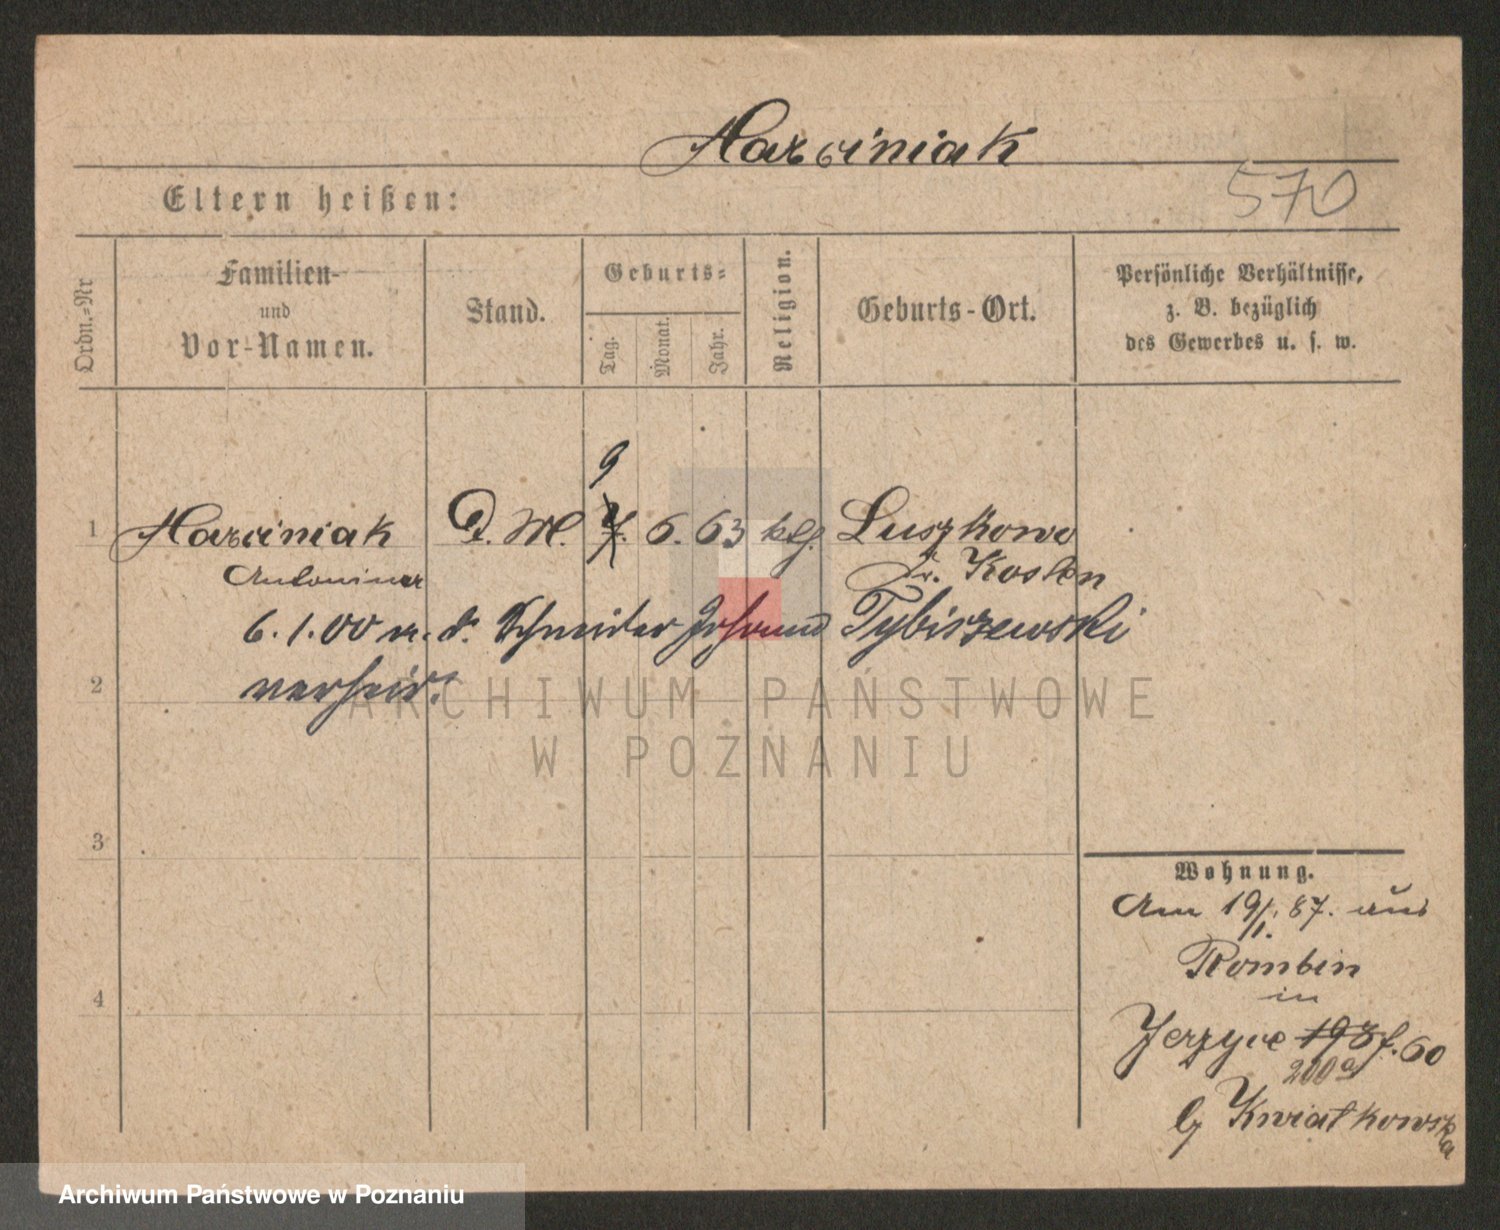 Marciniak
570
Eltern heißen:
Ordn.-Nr
Familien-
und
Vor-Namen.
Stand.
Geburts-
Tag.
Monat.
Jahr.
Religion.
Geburts-Ort.
Persönliche Verhältnisse,
z. B. bezüglich
des Gewerbes u. s. w.
9
1 Marciniak D. M. 7. 6. 63 klg. Luszkowo
Antonina Kr. Kosten
6.1.00 m. d. Schneider Tybiszewski
verheir.
2
3
4
Wohnung.
Am 19/1. 87. aus
Rombin
in
Jerzyce 198 f. 60
200a
b/ Kwiatkowska
ARCHIWUM PAŃSTWOWE
W POZNANIU
Archiwum Państwowe w Poznaniu